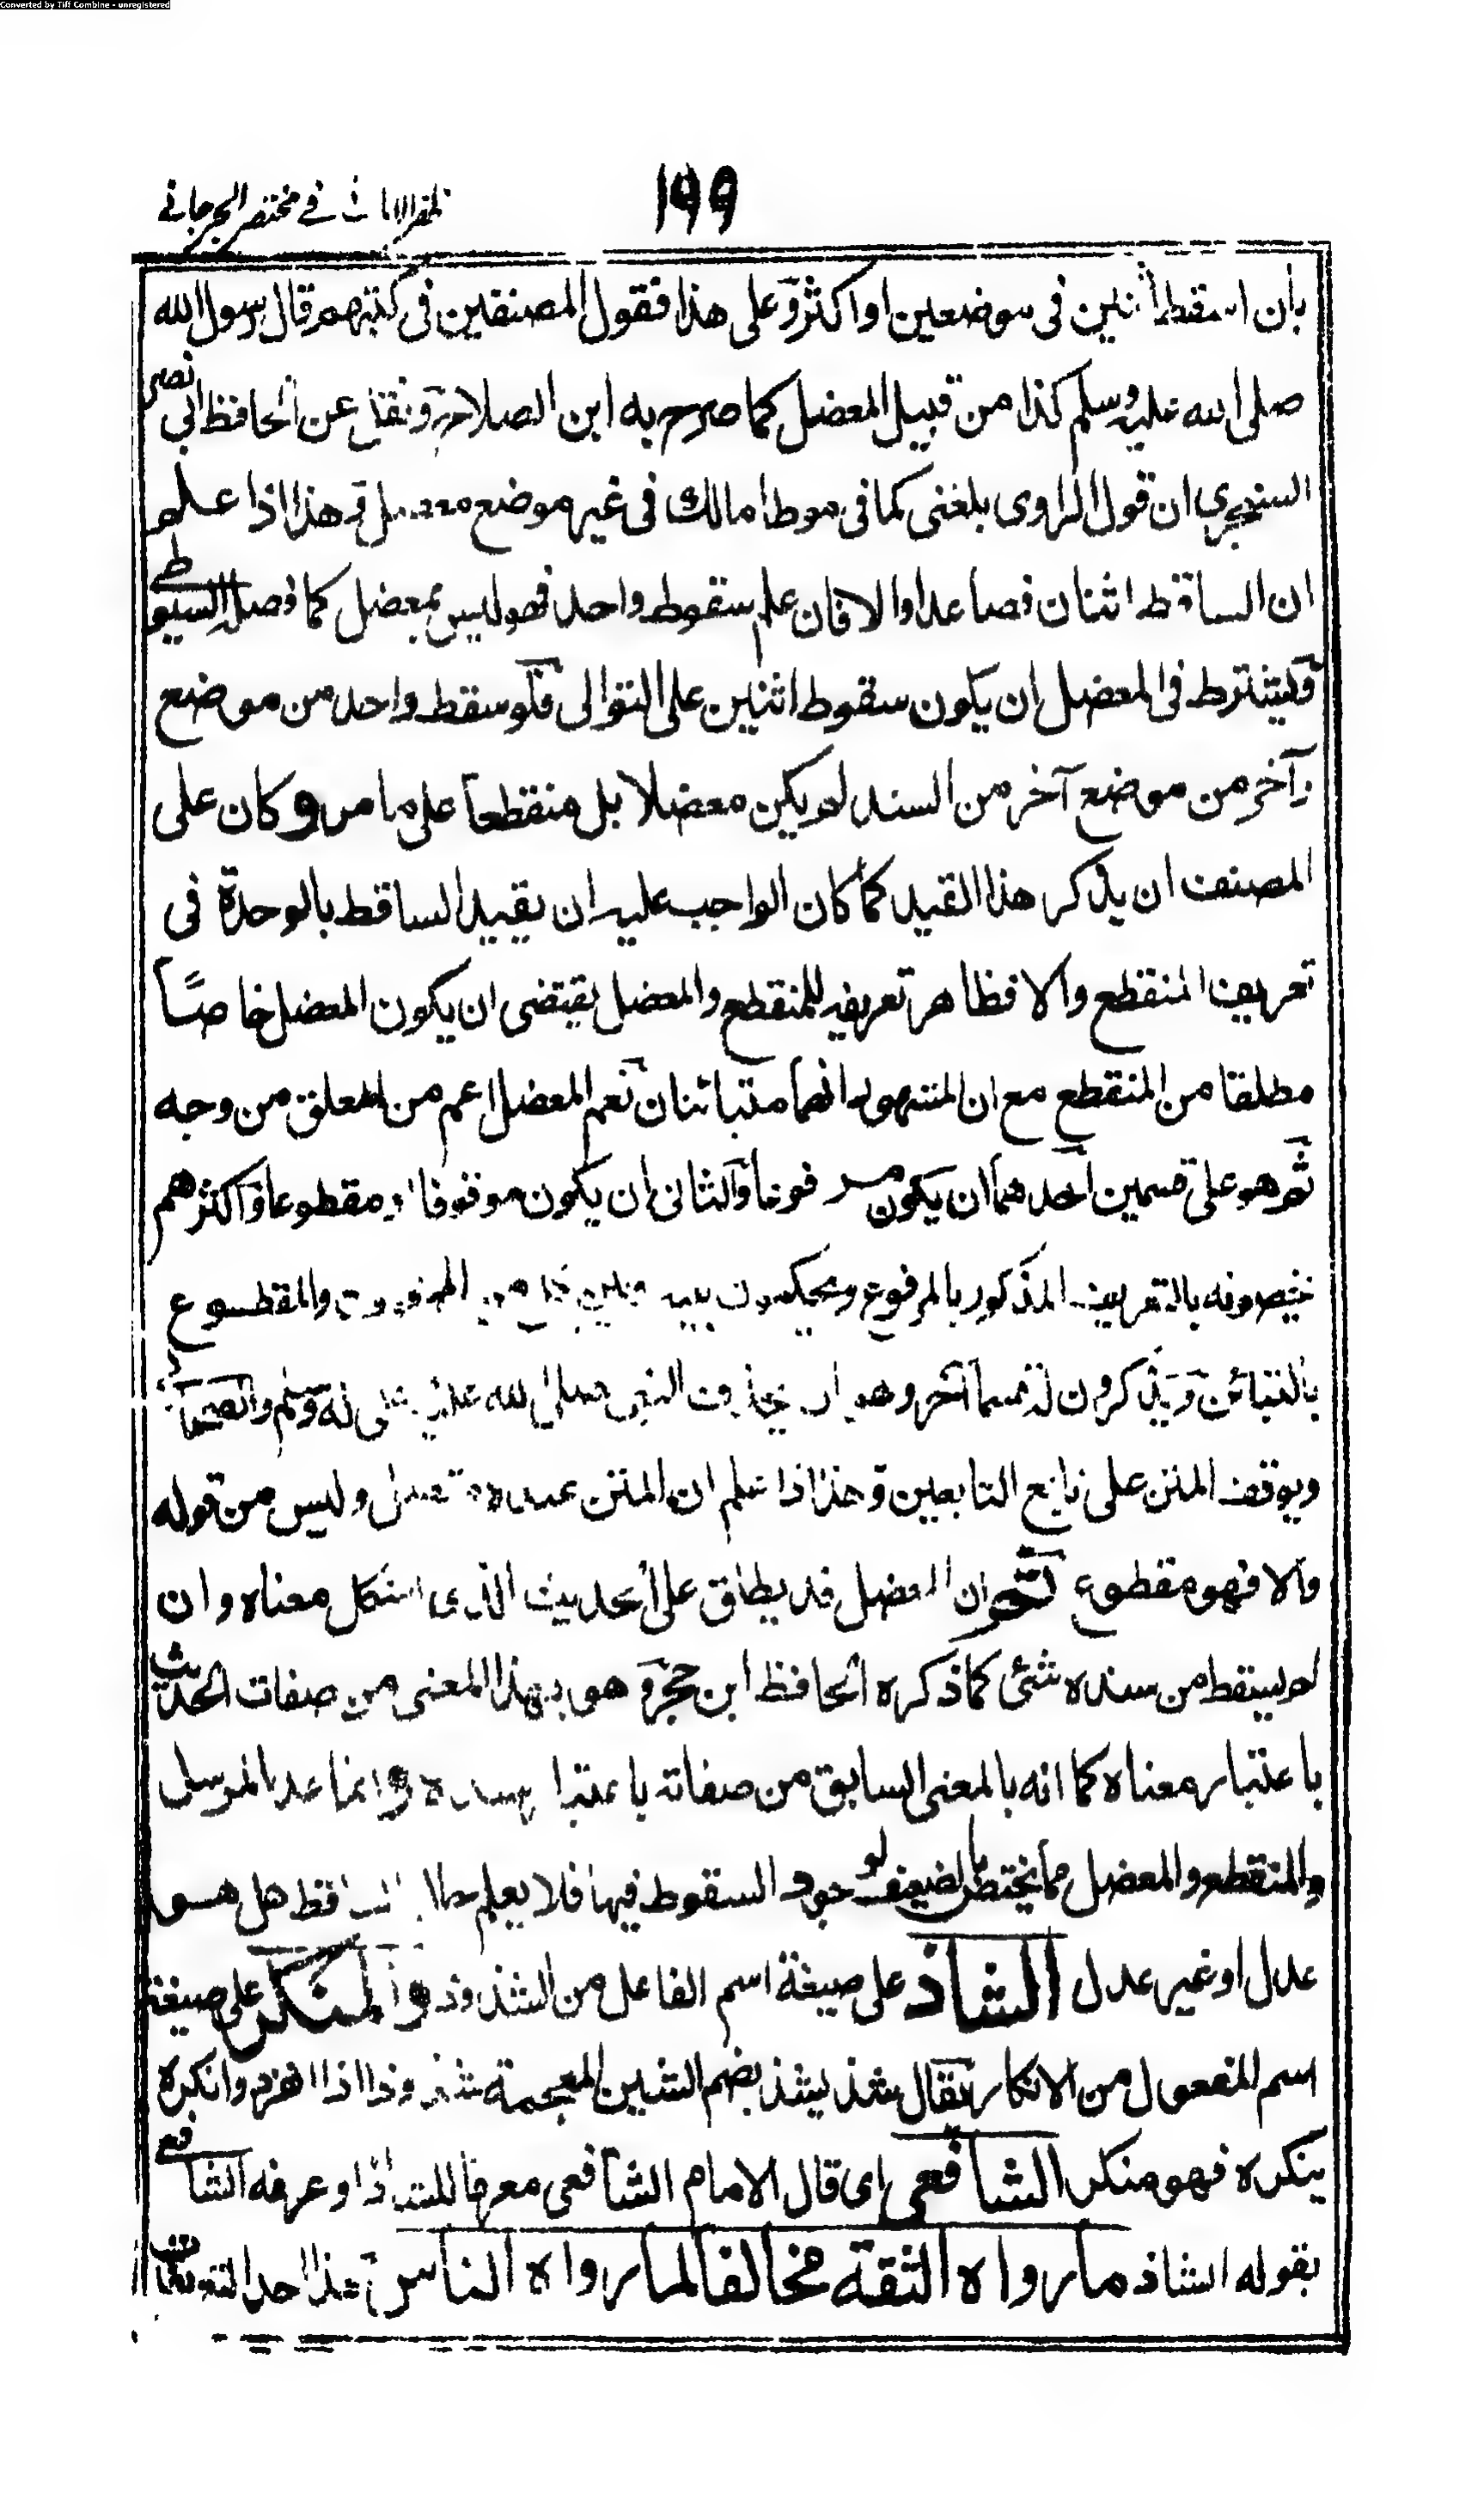 Converted by Tiff Combine - unregistered
ظفر الاماني في مختصر الجرجاني
١٩٩
بأن اسقط اثنين فى موضعين او اكثر وعلى هذا فقول المصنفين فى كتبهم قال رسول الله
صلى الله عليه وسلم كذا من قبيل المعضل كما صرح به ابن الصلاح ونقل عن الحافظ ابي نصر
السنجري ان قول الراوى بلغنى كما فى موطا مالك فى غير موضع هذا اذا علم
ان الساقط اثنان فصاعدا والا فان علم سقوط واحد فهو ليس بمعضل كما فصله السيوطي
فيشترط فى المعضل ان يكون سقوط اثنين على التوالى فلو سقط واحد من موضع
وآخر من موضع آخر من السند لم يكن معضلا بل منقطعا على ما مر وكان على
المصنف ان يذكر هذا القيد كما كان الواجب عليه ان يقيد الساقط بالوحدة فى
تعريف المنقطع والا فظاهر تعريفه للمنقطع والمعضل يقتضى ان يكون المعضل خاصًا
مطلقا من المنقطع مع ان المشهور انهما متبائنان نعم المعضل اعم من المعلق من وجه
ثم هو على قسمين احدهما ان يكون مرفوعا والثانى ان يكون موقوفا او مقطوعا واكثرهم
يخصونه بالتعريف المذكور بالمرفوع ويحكمون بينه وبين والمقطوع
بالتبائن ويذكرون له قسما آخر وهو ان يحذف النبي صلى الله عليه وعلى آله وسلم والصحابي
ويوقف المتن على تابع التابعين وهذا اذا علم ان المتن عنده متصل وليس من قوله
والا فهو مقطوع ثم ان المعضل قد يطلق على الحديث الذى اشكل معناه وان
لم يسقط من سنده شئ كما ذكره الحافظ ابن حجر وهو بهذا المعنى من صفات الحديث
باعتبار معناه كما انه بالمعنى السابق من صفاته باعتبار سنده وانما عد المرسل
والمنقطع والمعضل مما يختص بالضعيف لوجود السقوط فيها فلا يعلم حال الساقط هل هو
عدل او غير عدل الشاذ على صيغة اسم الفاعل من الشذوذ والمنكر على صيغة
اسم المفعول من الانكار يقال شذ يشذ بضم الشين المعجمة شذوذا اذا انفرد وانكره
ينكره فهو منكر الشافعى اى قال الامام الشافعى معرفا للشاذ او عرفه الشافعي
بقوله الشاذ ما رواه الثقة مخالفا لما رواه الناس هذا احد التعريفات